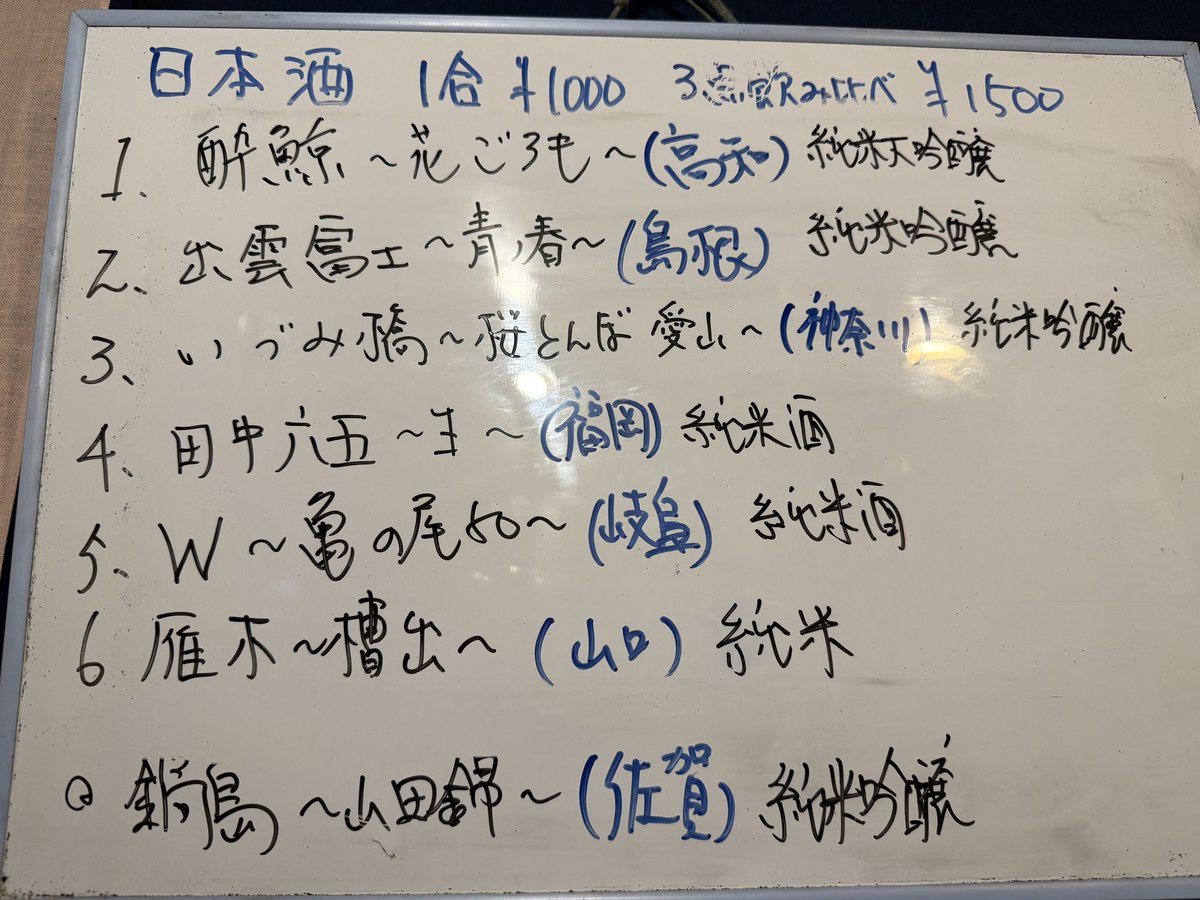 日本酒 1合 ¥1000 3点飲みくらべ ¥1500
1、酔鯨～花ごろも～(高知) 純米大吟醸
2、出雲富士～青ノ春～(島根) 純米吟醸
3、いづみ橋～桜とんぼ 愛山～(神奈川) 純米吟醸
4、田中六五～生～(福岡) 純米酒
5、W～亀の尾50～(岐阜) 純米酒
6 雁木～槽出～(山口) 純米
○ 鍋島～山田錦～(佐賀) 純米吟醸